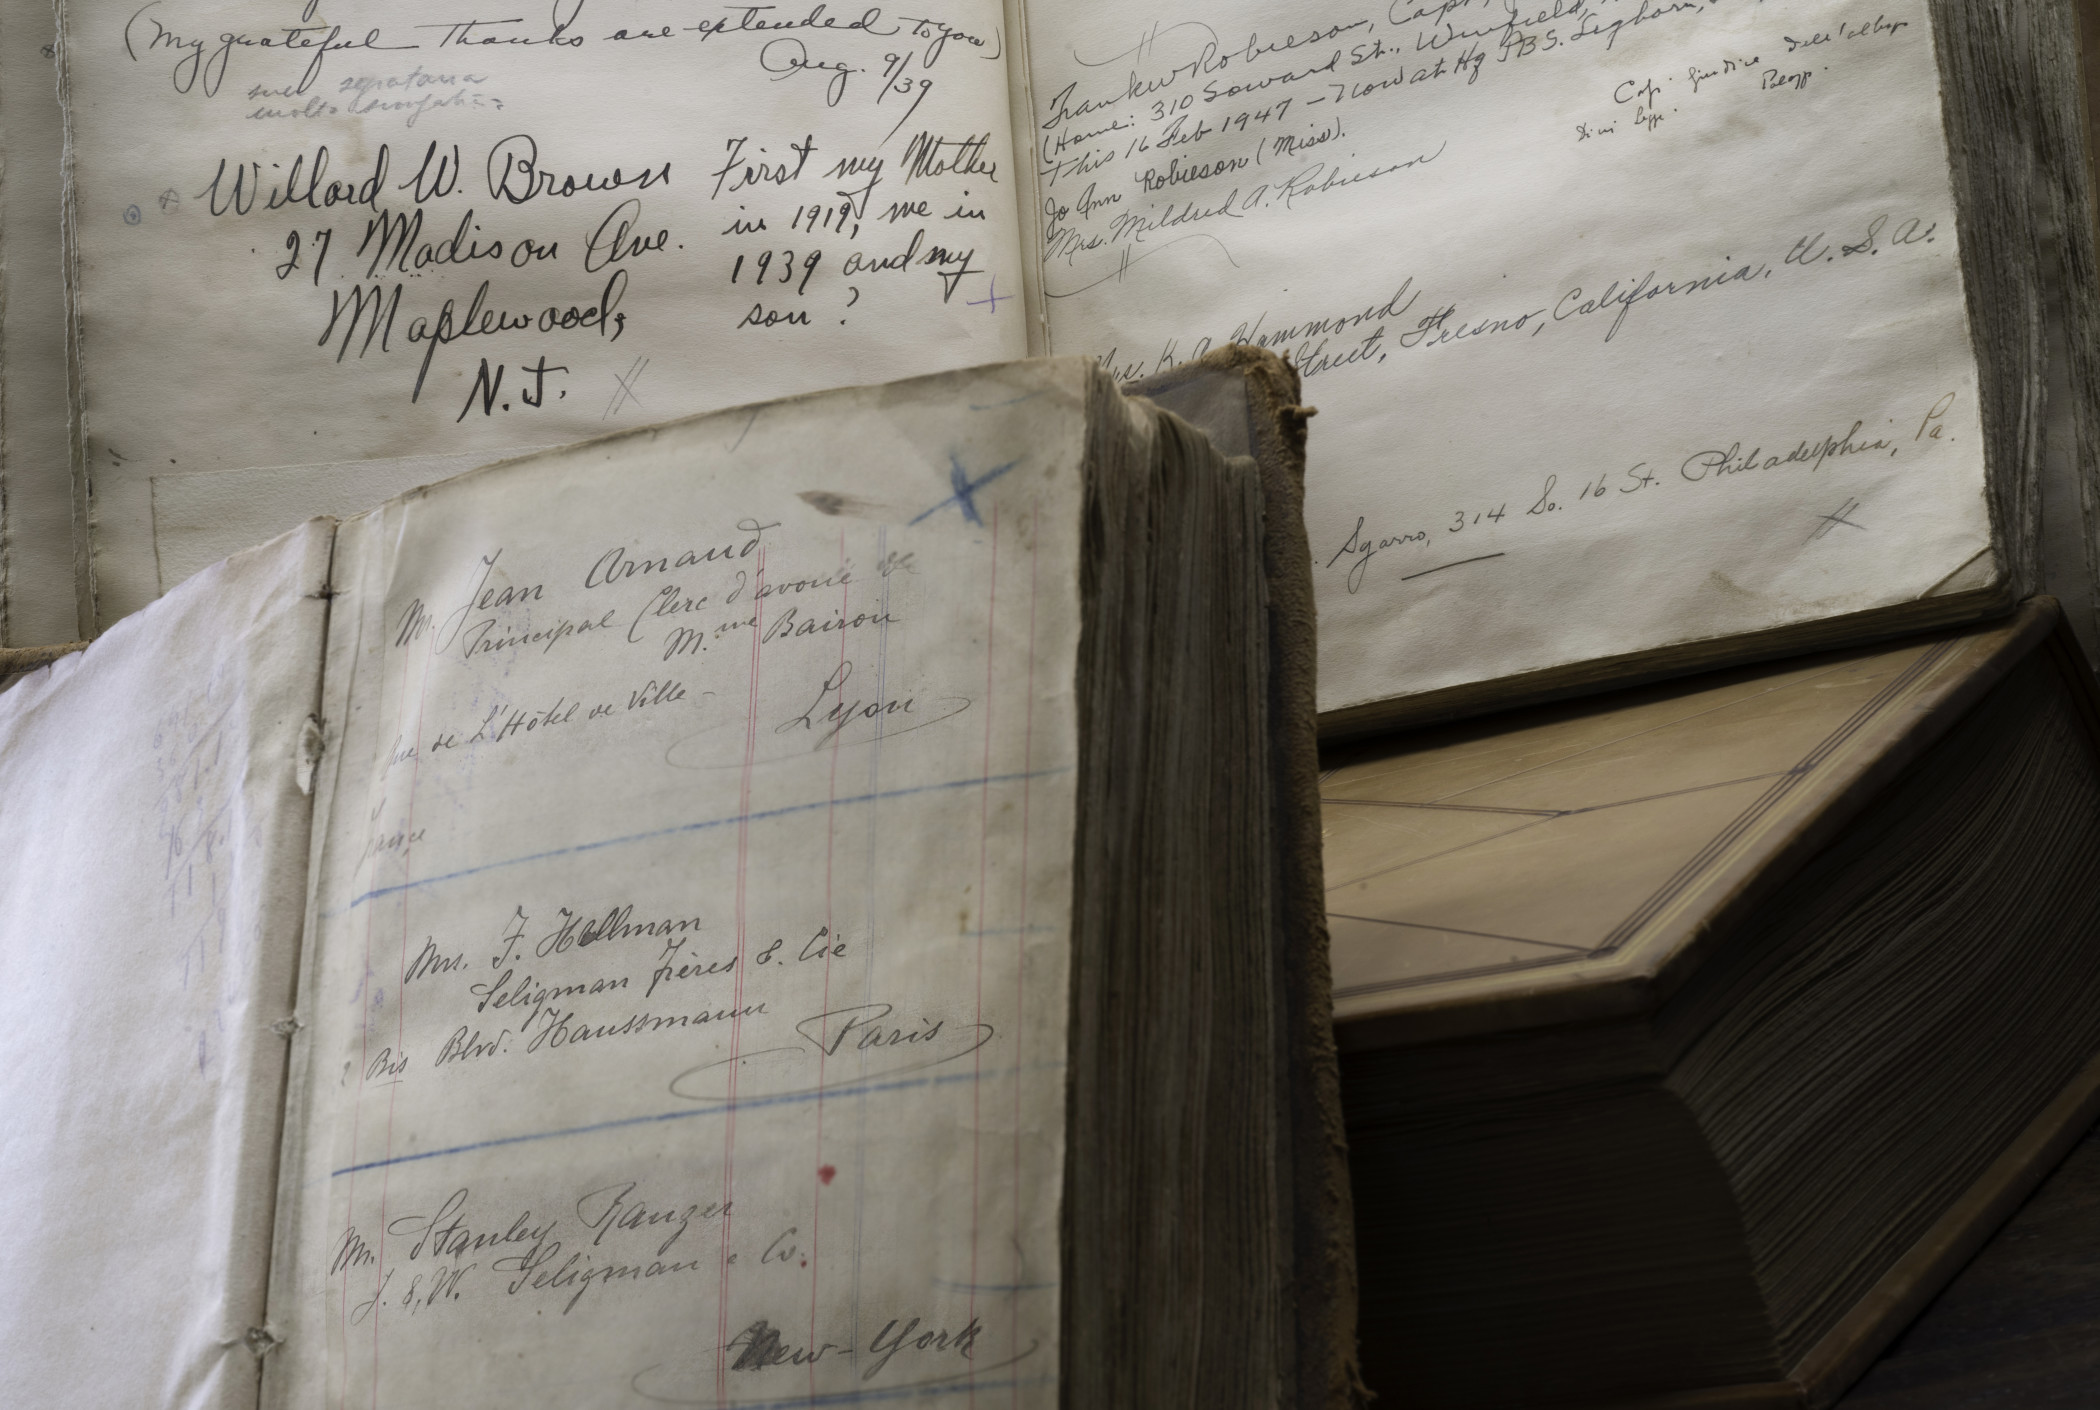 (My grateful Thanks are extended to you)
Aug. 9/39
Willard W. Brown
27 Madison Ave.
Maplewood,
N.J.
First my Mother
in 1919, me in
1939 and my
son?
Robieson, Capt,
(Home: 310 Soward St., Winfield,
This 16 Feb 1947 – Now at Hq PBS. Leghorn,
Jo Ann Robieson (Miss).
Mrs. Mildred A. Robieson
Mrs. K. A. Hammond
Street, Fresno, California, U.S.A.
Sgarro, 314 So. 16 St. Philadelphia, Pa.
Mr. Jean Arnaud
Principal Clerc d'avoué de
M.me Bairoir
rue de L'Hôtel de Ville –
Lyon
Mrs. F. Hellman
Seligman Frères & Cie
Bis Blvd. Haussmann
Paris
Mr. Stanley Ranger
J. & W. Seligman & Co.
New-York